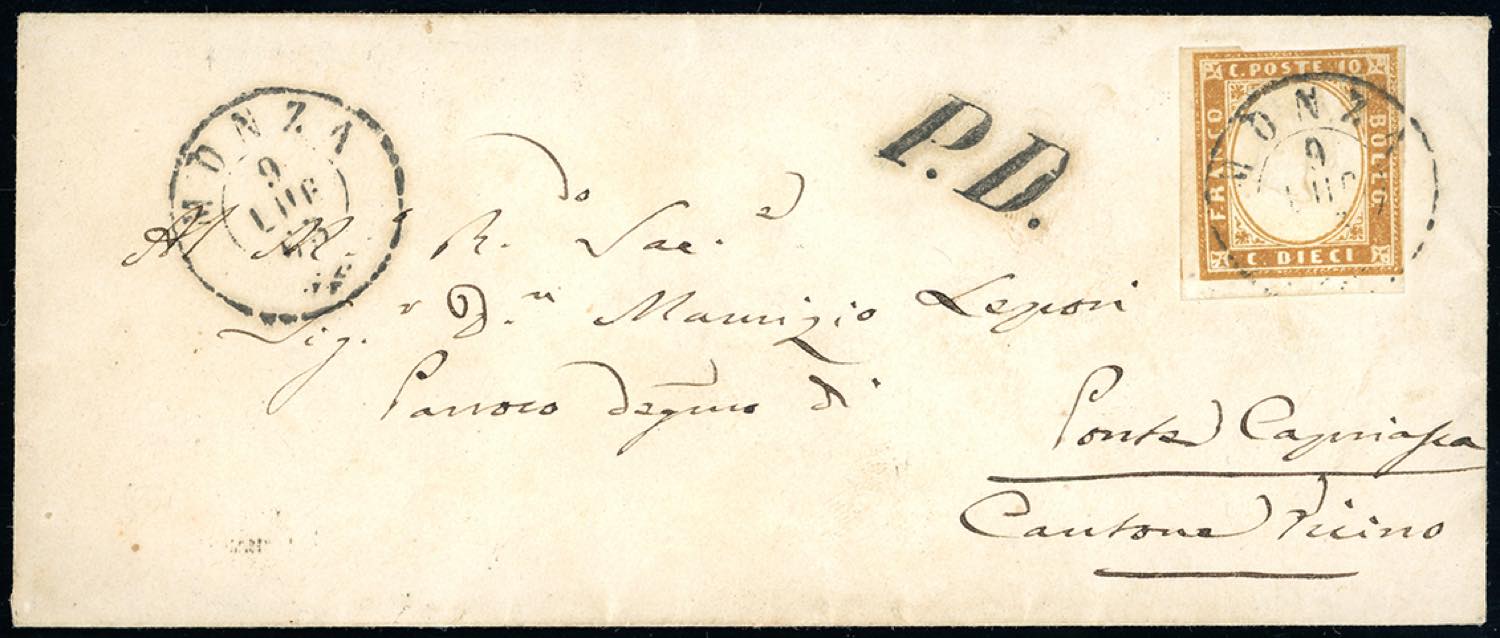 MONZA
9
LUG
P.D.
C. POSTE 10
FRANCO
BOLLO
C. DIECI
MONZA
9
LUG
Al M. R.do Sac.e
Sig.r D.n Maurizio Lepori
Parroco degmo di
Ponte Capriasca
Cantone Ticino